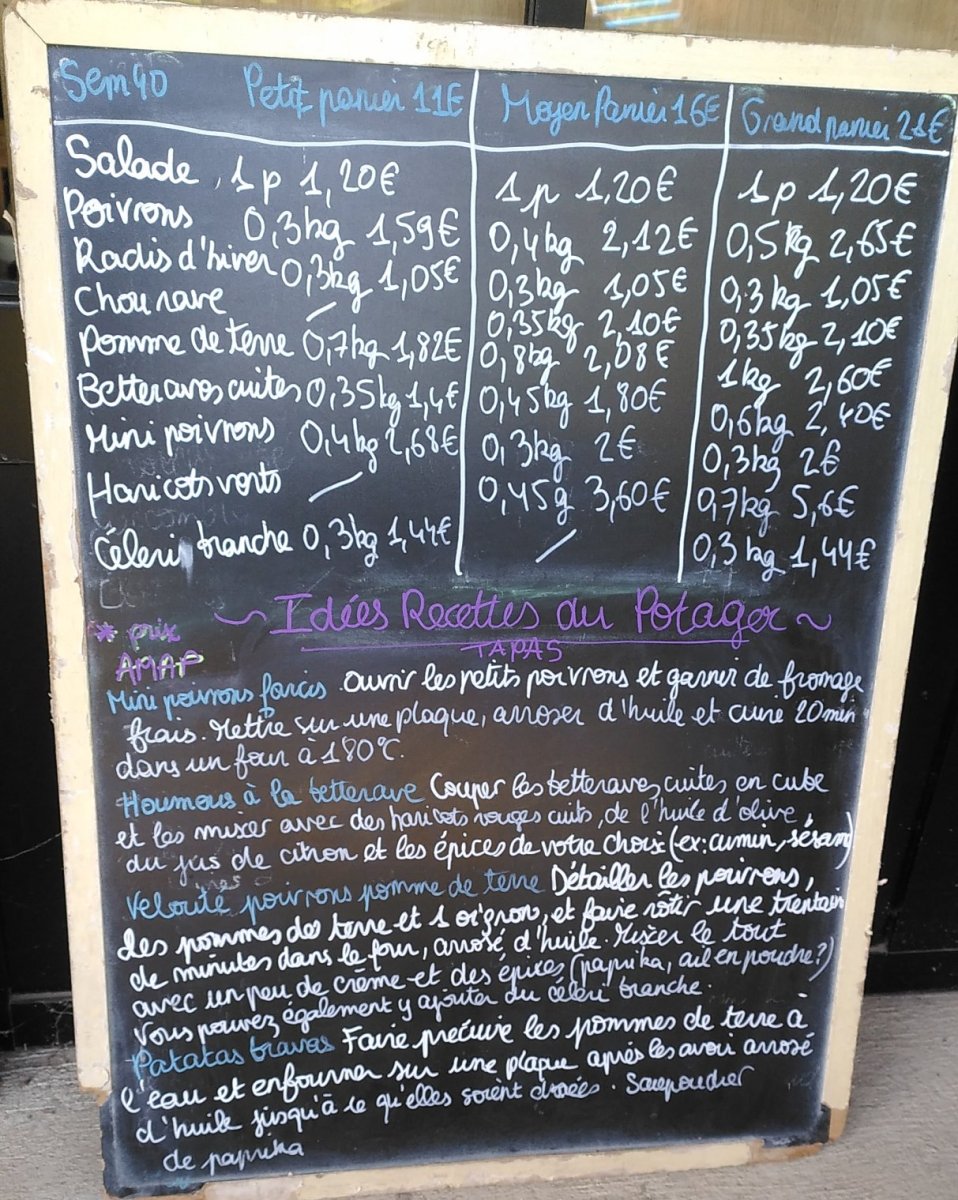 Sem 40 Petit panier 11€ Moyen Panier 16€ Grand panier 21€
Salade 1 p 1,20€ 1 p 1,20€ 1 p 1,20€
Poivrons 0,3kg 1,59€ 0,4kg 2,12€ 0,5kg 2,65€
Radis d'hiver 0,3kg 1,05€ 0,3kg 1,05€ 0,3kg 1,05€
Chou rave / 0,35kg 2,10€ 0,35kg 2,10€
Pomme de terre 0,7kg 1,82€ 0,8kg 2,08€ 1kg 2,60€
Betteraves cuites 0,35kg 1,4€ 0,45kg 1,80€ 0,6kg 2,40€
Mini poivrons 0,4kg 2,68€ 0,3kg 2€ 0,3kg 2€
Haricots verts / 0,45g 3,60€ 0,7kg 5,6€
Céleri branche 0,3kg 1,44€ / 0,3kg 1,44€
~ Idées Recettes du Potager ~
* prix
TAPAS
AMAP
Mini poivrons farcis Ouvrir les petits poivrons et garnir de fromage
frais. Mettre sur une plaque, arroser d'huile et cuire 20min
dans un four à 180°C.
Houmous à la betterave Couper les betteraves cuites en cube
et les mixer avec des haricots rouges cuits, de l'huile d'olive,
du jus de citron et les épices de votre choix (ex: cumin, sésam)
Velouté poivrons pomme de terre Détailler les poivrons,
les pommes de terre et 1 oignon, et faire rôtir une trentain
de minutes dans le four, arrosé d'huile. Mixer le tout
avec un peu de crème et des épices (paprika, ail en poudre?)
Vous pouvez également y ajouter du céleri branche.
Patatas bravas Faire précuire les pommes de terre à
l'eau et enfourner sur une plaque après les avoir arrosé
d'huile jusqu'à ce qu'elles soient dorées. Saupoudrer
de paprika